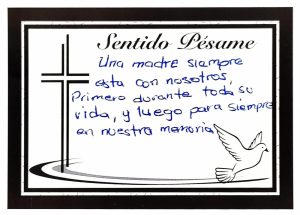 Sentido Pésame
Una madre siempre
esta con nosotros,
Primero durante toda su
vida, y luego para siempre
en nuestra memoria